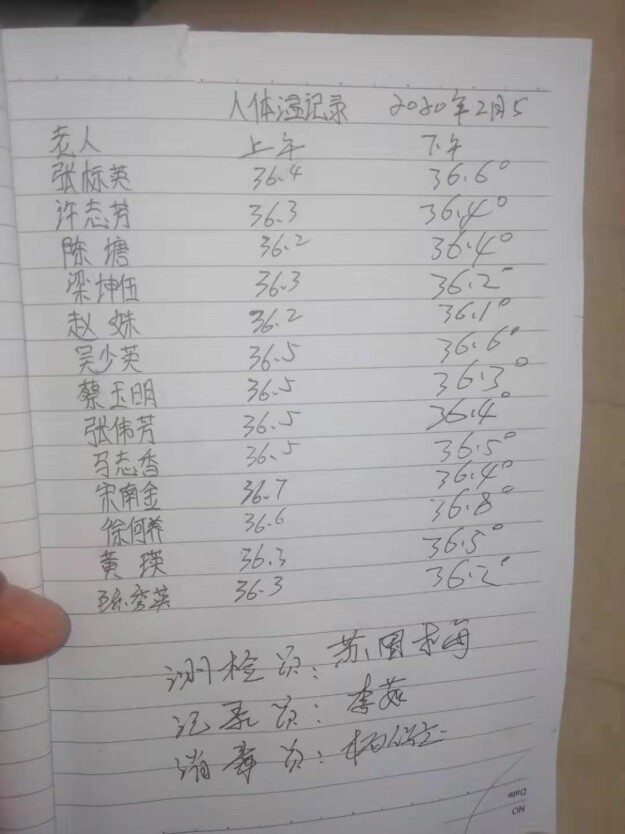 人体温记录 2020年2月5
老人 上午 下午
张标英 36.4 36.6°
许志芳 36.3 36.4°
陈塘 36.2 36.4°
梁坤伍 36.3 36.2°
赵妹 36.2 36.1°
吴少英 36.5 36.6°
蔡玉明 36.5 36.3°
张伟芳 36.5 36.4°
马志香 36.5 36.5°
宋南金 36.7 36.4°
徐何养 36.6 36.8°
黄瑛 36.3 36.5°
秀英 36.3 36.2°
测检员:苏
记录员:李
消毒员:杨